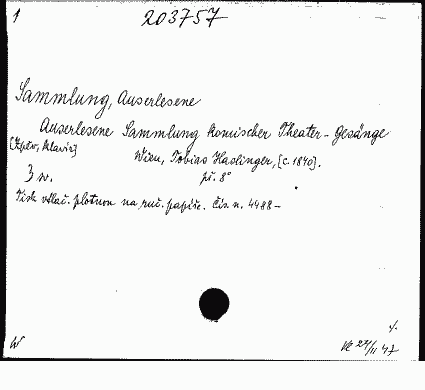 1
203757
Sammlung, Auserlesene
Auserlesene Sammlung komischer Theater-Gesänge
[Zpěv, klavír]
Wien, Tobias Haslinger, [c. 1840].
3 sv. př. 8°
Tisk vtlač. plotnou na ruč. papíře. Čís. n. 4488-
W
27/II 47